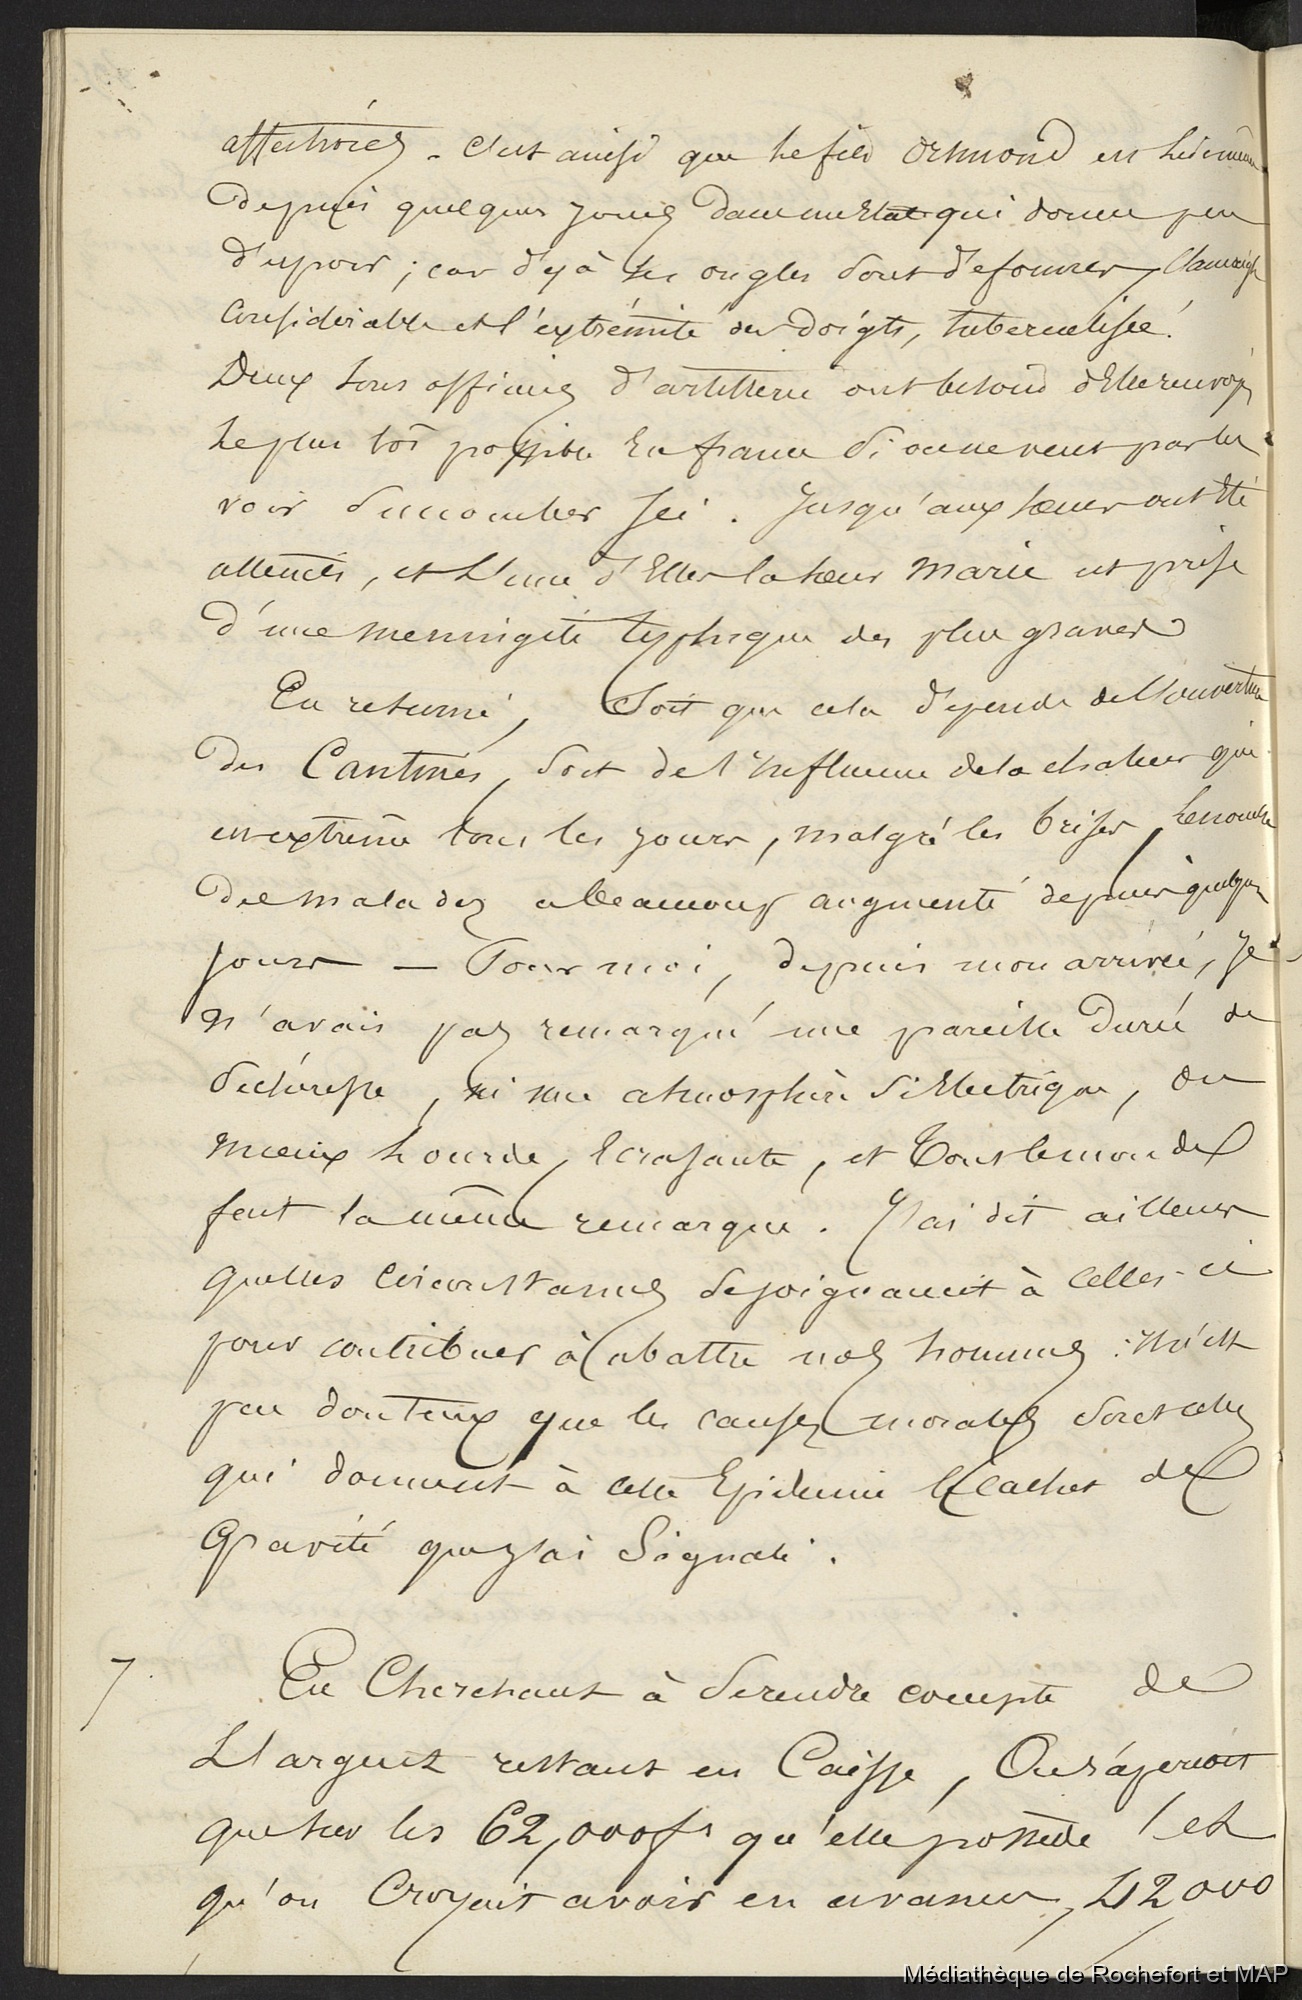 affections. C'est ainsi que le fils Ormond est lui-même
depuis quelques jours dans un état qui donne peu
d'espoir ; car déjà les ongles sont déformés,
considérable et l'extrémité des doigts, tuberculisée !
Deux sous officiers d'artillerie ont besoin d'être renvoyés
le plus tôt possible en france si on ne veut pas les
voir succomber ici. Jusqu'aux sœurs ont été
atteintes, et l'une d'Elles la sœur Marie est prise
d'une meningite typhique des plus graves
En résumé, Soit que cela dépende de l'ouverture
des Cantines, soit de l'influence de la chaleur qui
est extrême tous les jours, malgré les brises, le nombre
des malades a beaucoup augmenté depuis quelques
jours — Pour moi, depuis mon arrivée, je
n'avais pas remarqué une pareille durée de
sécheresse, ni une atmosphère si Electrique, ou
mieux lourde, écrasante, et tout le monde
fait la même remarque. J'ai dit ailleurs
quelles circonstances se joignaient à celles-ci
pour contribuer à abattre nos hommes : il n'est
pas douteux que les causes morales soient celles
qui donnent à cette Epidemie le cachet de
Gravité que j'ai Signalé.
7 En Cherchant à se rendre compte de
L'argent restant en Caisse, On s'aperçoit
que sur les 62,000 fs qu'elle possède ! et
qu'on Croyait avoir en avance, 42000
Médiathèque de Rochefort et MAP